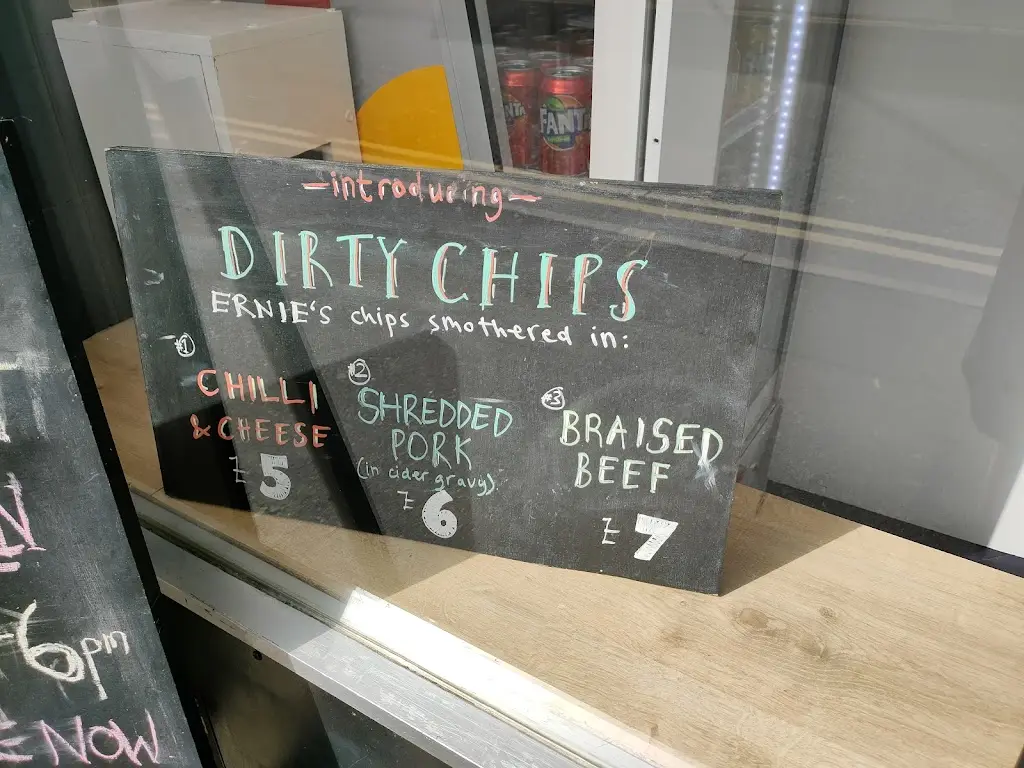 FANT
-introducing-
DIRTY CHIPS
ERNIE'S chips smothered in:
#1
CHILLI
& CHEESE
£5
#2
SHREDDED
PORK
(in cider gravy)
£6
#3
BRAISED
BEEF
£7
6pm
NOW